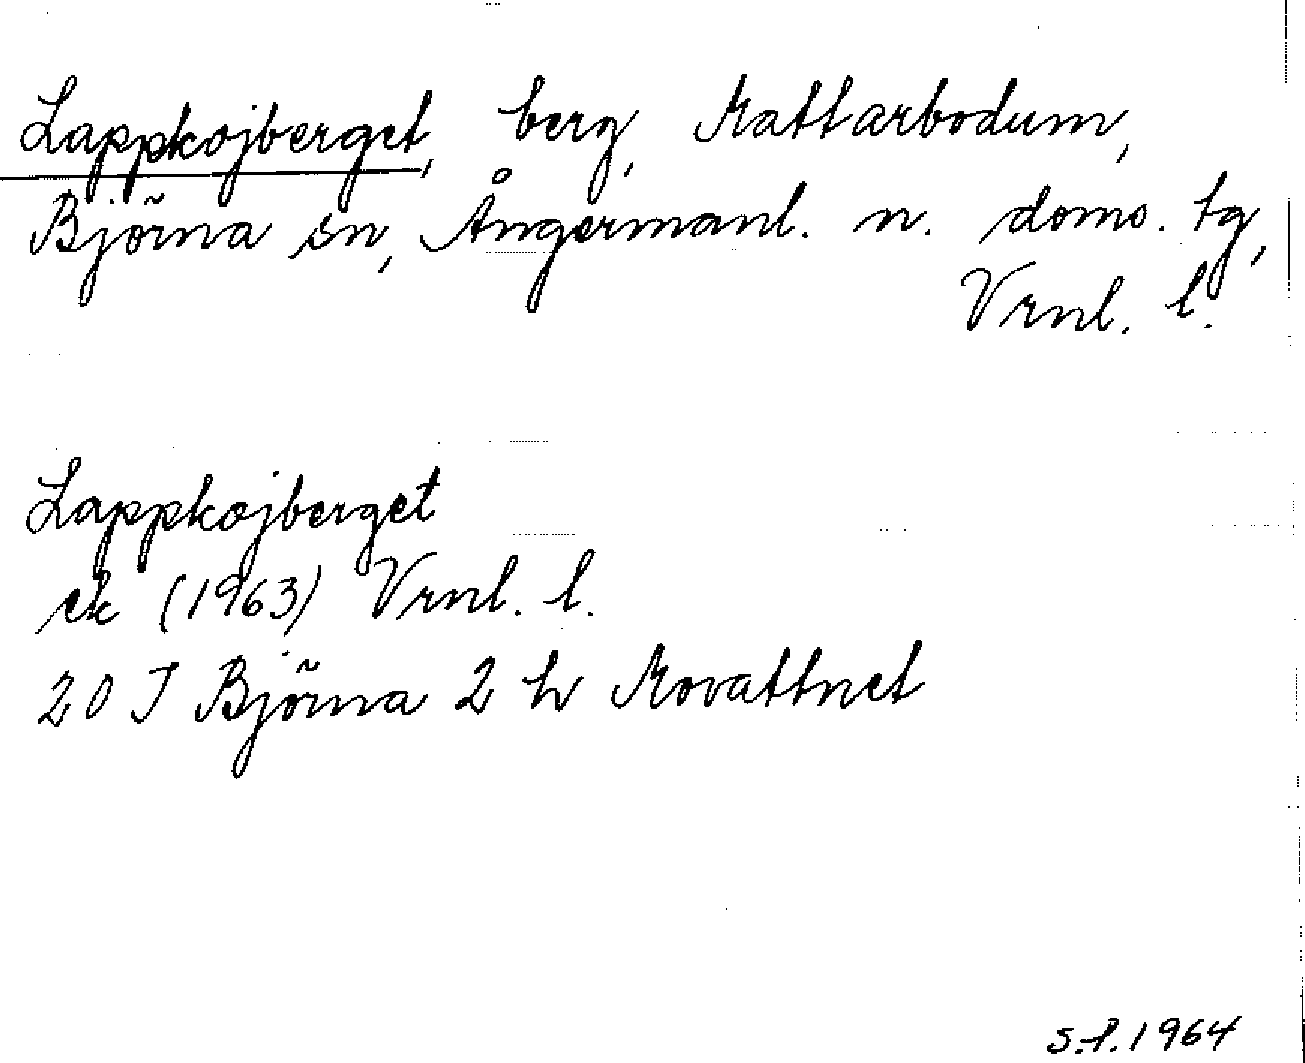 Lappkojberget, berg, Mattarbodum,
Björna sn, Ångermanl. n. doms. tg,
Vrnl. l.
Lappkojberget
ek (1963) Vrnl. l.
20 J Björna 2 h Movattnet
s.l. 1964